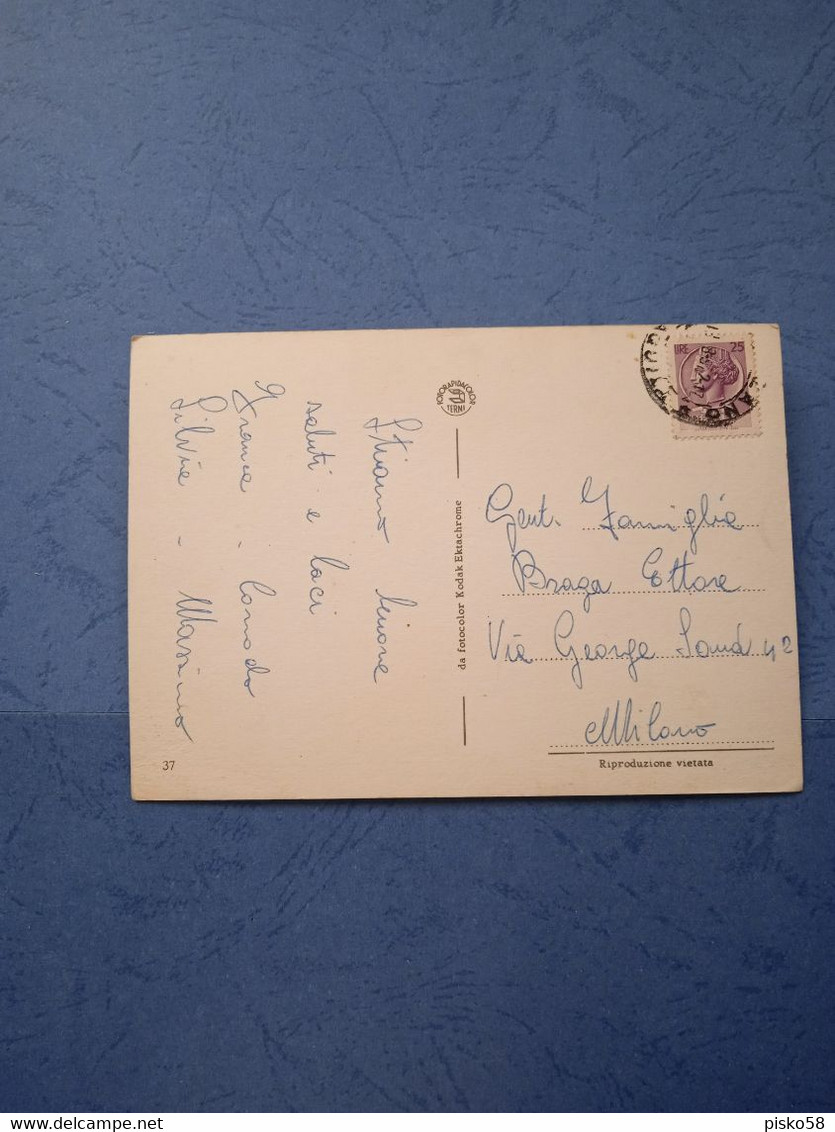 LIRE 25
FOTORAPIDACOLOR
TERNI
Stiamo bene
saluti e baci
Franca - Corrado
Silvia - Massimo
da fotocolor Kodak Ektachrome
Gent. Famiglia
Braga Ettore
Via George Sand 42
Milano
Riproduzione vietata
37
www.delcampe.net
pisko58